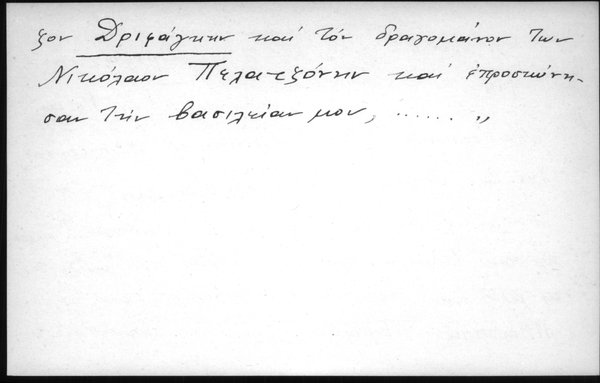 ξον Δριφάγκην καί τόν δραγομάνον των
Νικόλαον Πελατεξόνην καί ἐπροσκύνη-
σαν τήν βασιλείαν μου, ...... „